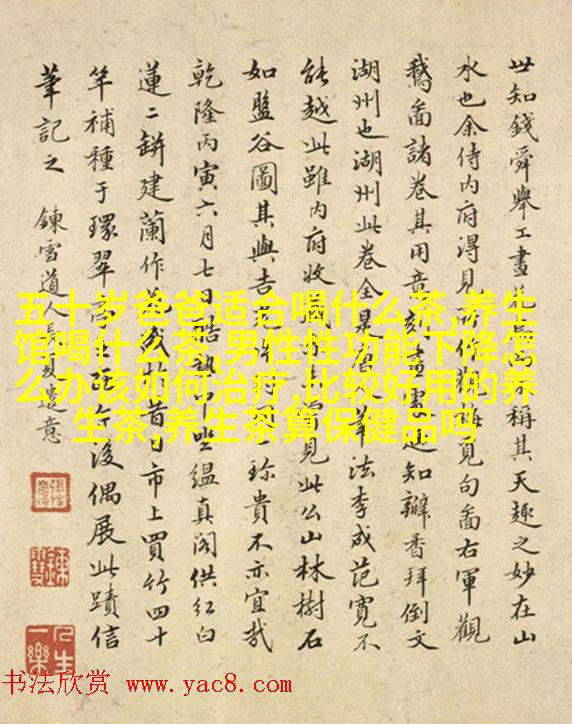 世知錢舜舉工畫 稱其天趣之妙在山
水也余侍内府得見 見句畱右軍觀
鵞畱諸卷其用意刻畫 知瓣香拜倒文
湖州也湖州此卷全 筆法李成范寬不
能越此雖内府收 見此公山林樹石
如盤谷圖其與吉 珍貴不亦宜哉
乾隆丙寅六月七日酷熱中坐緼真閣供紅白
蓮二缾建蘭作花 昔日市上買竹四十
竿補種于環翠 後偶展此蹟信
筆記之 鍊雪道人長夏遣意
五十岁爸爸适合喝什么茶,养生
馆喝什么茶,男性性功能下降怎
么办该如何治疗,比较好用的养
生茶,养生茶算保健品吗
人生一樂
书法欣赏 www.yac8.com